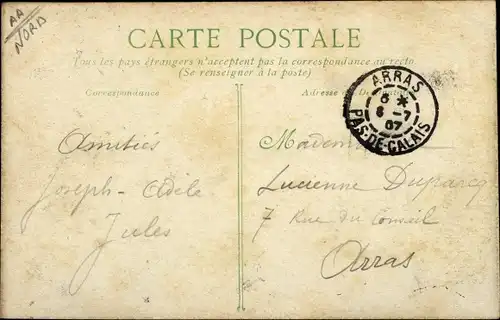 AA
NORD
CARTE POSTALE
Tous les pays étrangers n'acceptent pas la correspondance au recto
(Se renseigner à la poste)
Correspondance
Adresse
ARRAS
6 *
6 - 7
07
PAS-DE-CALAIS
Amitiés
Joseph - Adèle
Jules
Lucienne Duparcq
7 Rue du Conseil
Arras